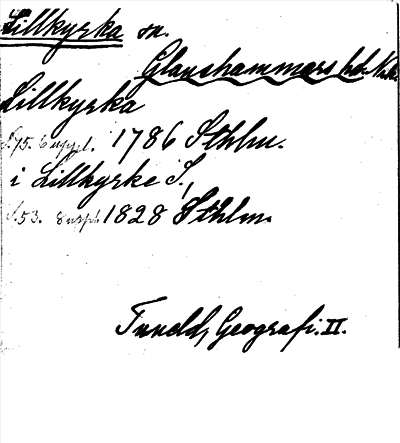 Lillkyrka sn.
Glanshammars hd. Närke.
Lillkyrka
S. 75. 6 uppl. 1786 Sthlm.
i Lillkyrke S.,
S. 53. 8 uppl. 1828 Sthlm.
Tuneld, Geografi. II.